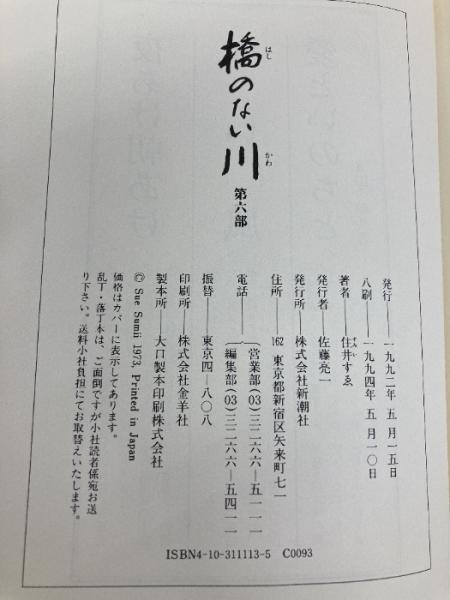 橋のない川
はし
かわ
第六部
発行 一九九二年 五 月一五日
八刷 一九九四年 五 月一〇日
著者 住井すゑ
すみ
発行者 佐藤亮一
発行所 株式会社新潮社
住所 162 東京都新宿区矢来町七一
電話 営業部(03)三二六六―五一一一
編集部(03)三二六六―五四一一
振替 東京四―八〇八
印刷所 株式会社金羊社
製本所 大口製本印刷株式会社
© Sue Sumii 1973, Printed in Japan
価格はカバーに表示してあります。
乱丁・落丁本は、ご面倒ですが小社読者係宛お送
り下さい。送料小社負担にてお取替えいたします。
ISBN4-10-311113-5 C0093